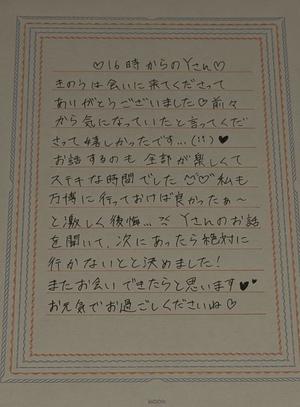 ♡16時からのYさん♡
きのうは会いに来てくださって
ありがとうございました♡前々
から気になっていたと言ってくだ
さって嬉しかったです…(;;)♥
お話するのも全部が楽しくて
ステキな時間でした♡私も
万博に行っておけば良かったぁ〜
と激しく後悔…Yさんのお話
を聞いて、次にあったら絶対に
行かないとと決めました!
またお会いできたらと思います♥♥
お元気でお過ごしくださいね♡